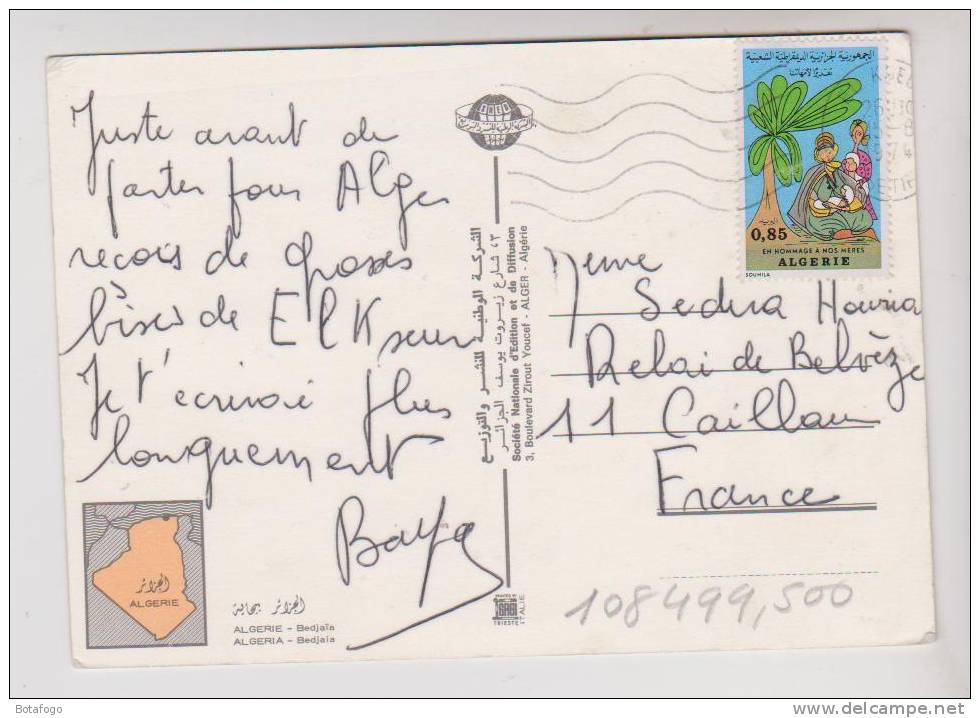 Juste avant de
partir pour Alger
reçois de grosses
bises de El Kseur
Je t'écrirai plus
longuement
Baya
الجزائر
ALGERIE
الجزائر بجاية
ALGERIE - Bedjaïa
ALGERIA - Bedjaia
SNED
الشركة الوطنية للنشر والتوزيع
٣ شارع زيروت يوسف الجزائر
Société Nationale d'Edition et de Diffusion
3, Boulevard Zirout Youcef - ALGER - Algérie
PRINTED BY
TRIESTE
ITALIE
الجمهورية الجزائرية الديمقراطية الشعبية
تقديرًا لأمهاتنا
البريد
0,85
EN HOMMAGE A NOS MERES
ALGERIE
SOUHILA
Meme
Sedira Houria
Relai de Belvèze
11 Caillau
France
108499,500
Botafogo